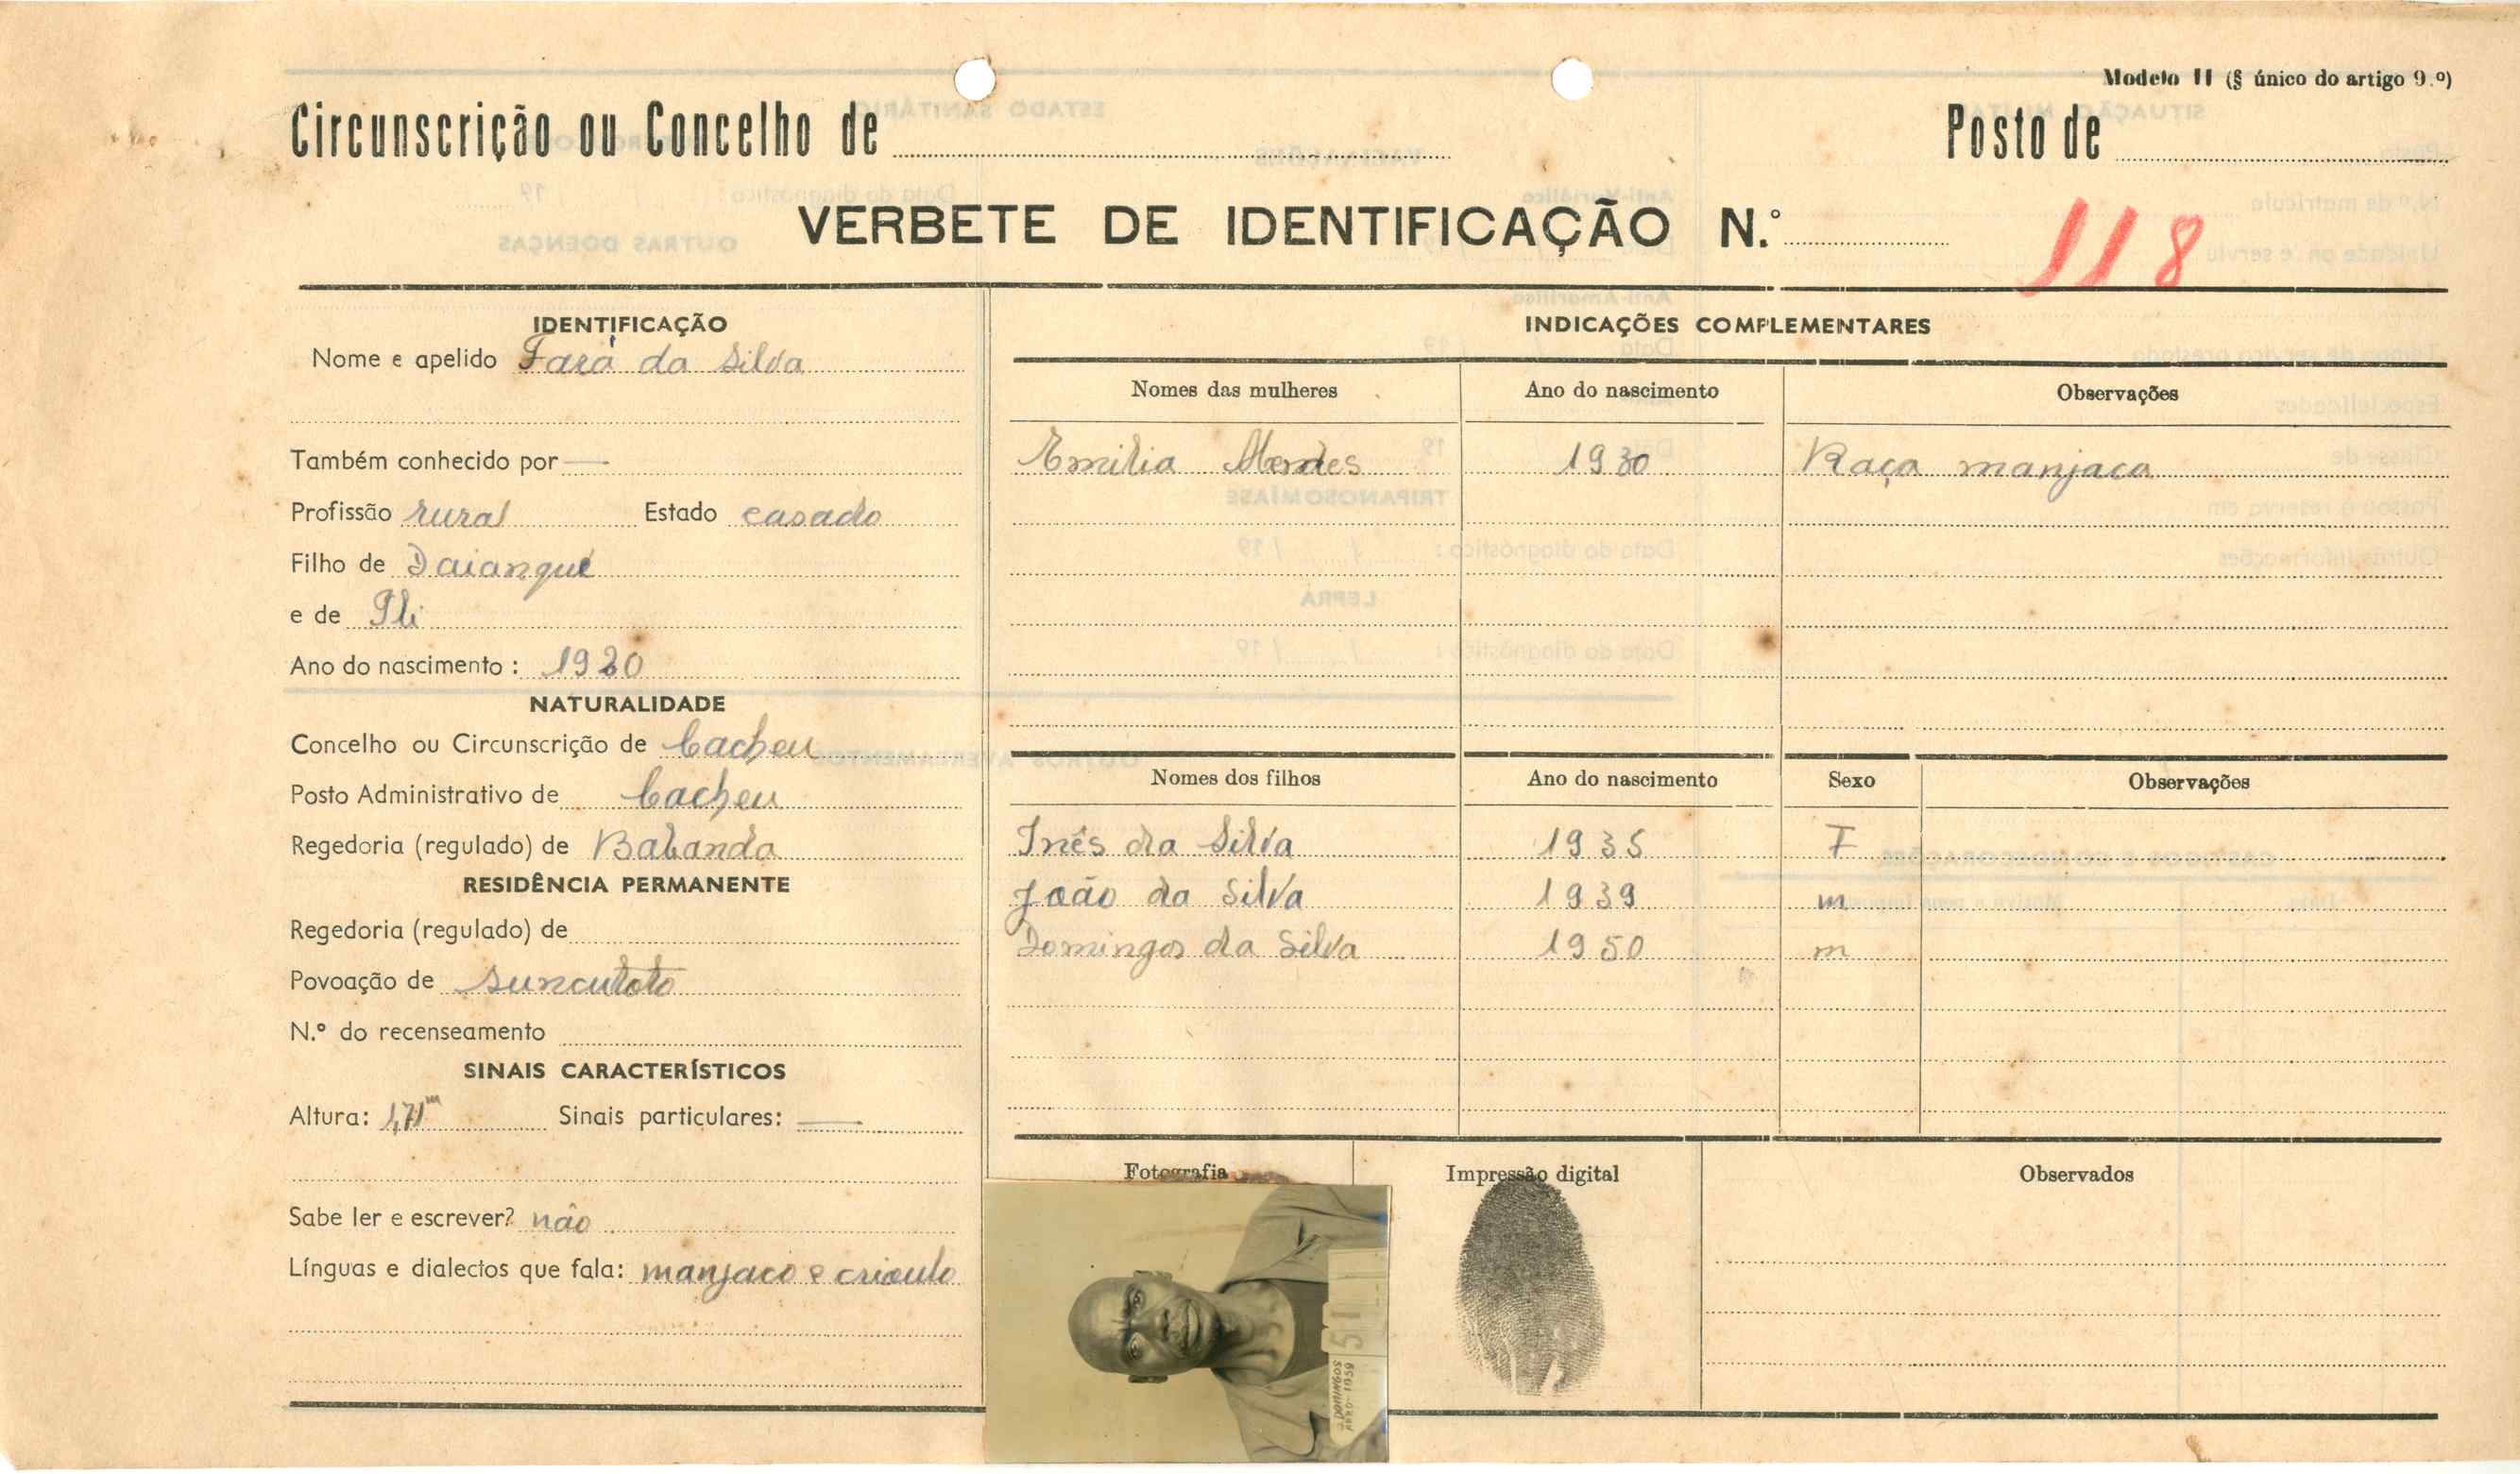 Modelo 11 (§ único do artigo 9.º)
Circunscrição ou Concelho de
Posto de
VERBETE DE IDENTIFICAÇÃO N.º
118
IDENTIFICAÇÃO
Nome e apelido Fará da Silva
Também conhecido por —
Profissão rural Estado casado
Filho de Daiangué
e de
Ano do nascimento: 1920
NATURALIDADE
Concelho ou Circunscrição de Cacheu
Posto Administrativo de Cacheu
Regedoria (regulado) de Babanda
RESIDÊNCIA PERMANENTE
Regedoria (regulado) de
Povoação de Suncutoto
N.º do recenseamento
SINAIS CARACTERÍSTICOS
Altura: 1,71m Sinais particulares: —
Sabe ler e escrever? não
Línguas e dialectos que fala: manjaco e crioulo
INDICAÇÕES COMPLEMENTARES
Nomes das mulheres Ano do nascimento Observações
Emilia Mendes 1930 Raça manjaca
Nomes dos filhos Ano do nascimento Sexo Observações
Inês da Silva 1935 F
João da Silva 1939 m
Domingos da Silva 1950 m
Fotografia
Impressão digital
Observados
51
DOMINGOS
1959